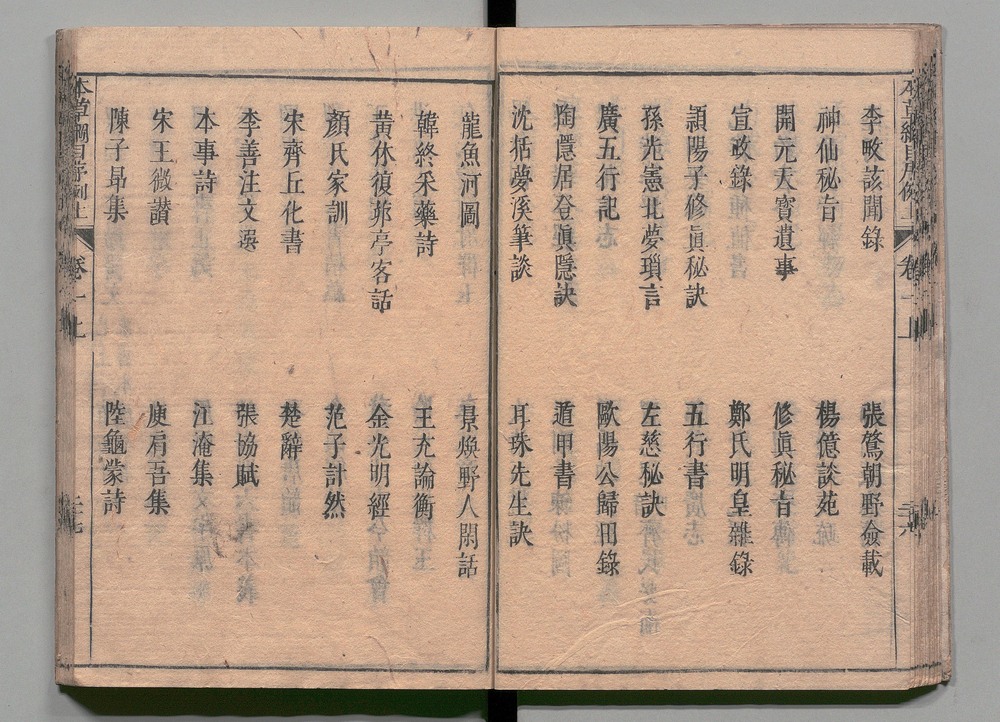 本草綱目序例上 卷一上 三六
李畋該聞錄 張鷟朝野僉載
神仙秘旨 楊億談苑
開元天寶遺事 修眞秘旨
宣政錄 鄭氏明皇雜錄
潁陽子修眞秘訣 五行書
孫光憲北夢瑣言 左慈秘訣
廣五行記 歐陽公歸田錄
陶隱居登眞隱訣 遁甲書
沈括夢溪筆談 耳珠先生訣
龍魚河圖 景煥野人閑話
韓終采藥詩 王充論衡
黃休復茆亭客話 金光明經
顏氏家訓 范子計然
宋齊丘化書 楚辭
李善注文選 張協賦
本事詩 江淹集
宋王微讃 庾肩吾集
陳子昻集 陸龜蒙詩
本草綱目序例上 卷一上 三七